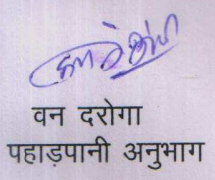 वन दरोगा
पहाड़पानी अनुभाग